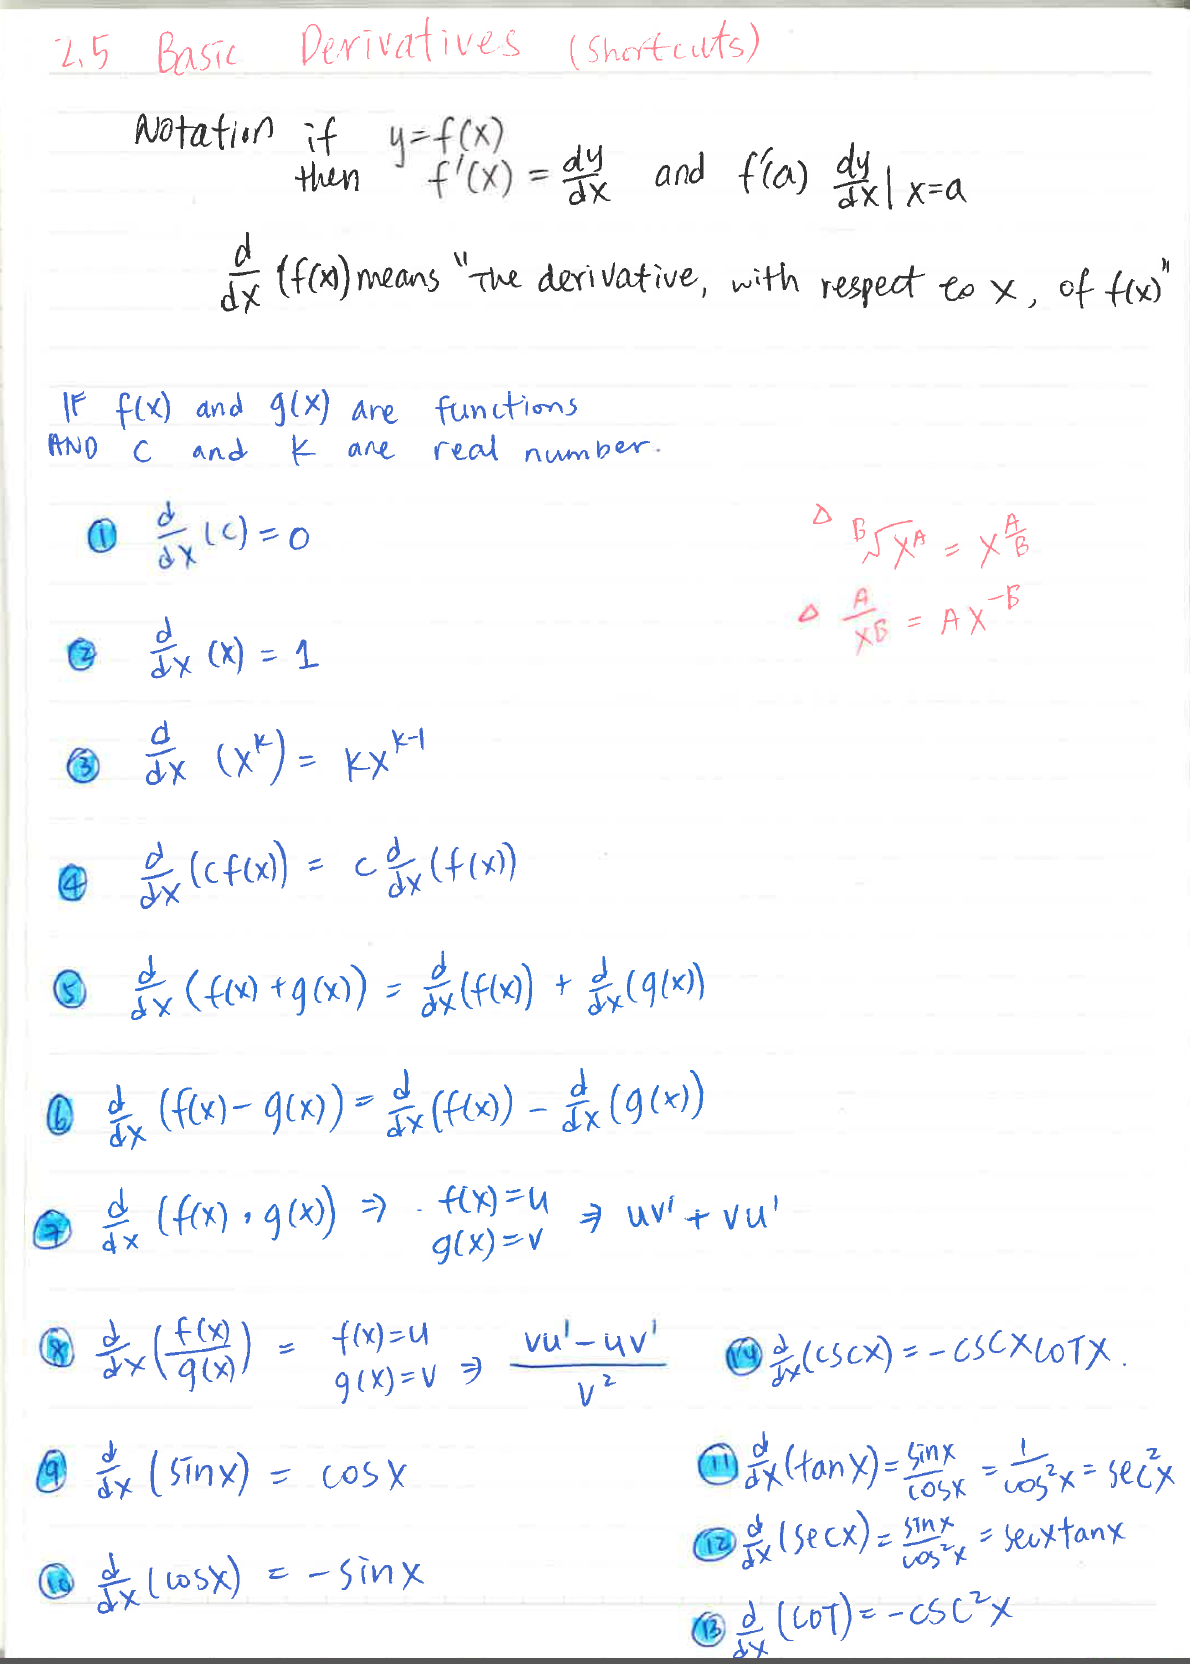 2.5 Basic Derivatives (Shortcuts)
Notation if y=f(x)
then f'(x) = dy/dx and f'(a) dy/dx | x=a
d/dx (f(x)) means "The derivative, with respect to x, of f(x)"
IF f(x) and g(x) are functions
AND C and K are real number.
① d/dx (C) = 0
△ ᴮ√xᴬ = x^(A/B)
△ A/xB = Ax^(-B)
② d/dx (x) = 1
③ d/dx (x^k) = kx^(k-1)
④ d/dx (cf(x)) = c d/dx (f(x))
⑤ d/dx (f(x) + g(x)) = d/dx (f(x)) + d/dx (g(x))
⑥ d/dx (f(x) - g(x)) = d/dx (f(x)) - d/dx (g(x))
⑦ d/dx (f(x) · g(x)) ⇒ f(x)=u g(x)=v ⇒ uv' + vu'
⑧ d/dx (f(x)/g(x)) = f(x)=u g(x)=v ⇒ (vu' - uv')/v²
⑭ d/dx (cscx) = -cscxcotx.
⑨ d/dx (sinx) = cosx
⑪ d/dx (tanx) = sinx/cosx = 1/cos²x = sec²x
⑫ d/dx (secx) = sinx/cos²x = secxtanx
⑩ d/dx (cosx) = -sinx
⑬ d/dx (COT) = -csc²x